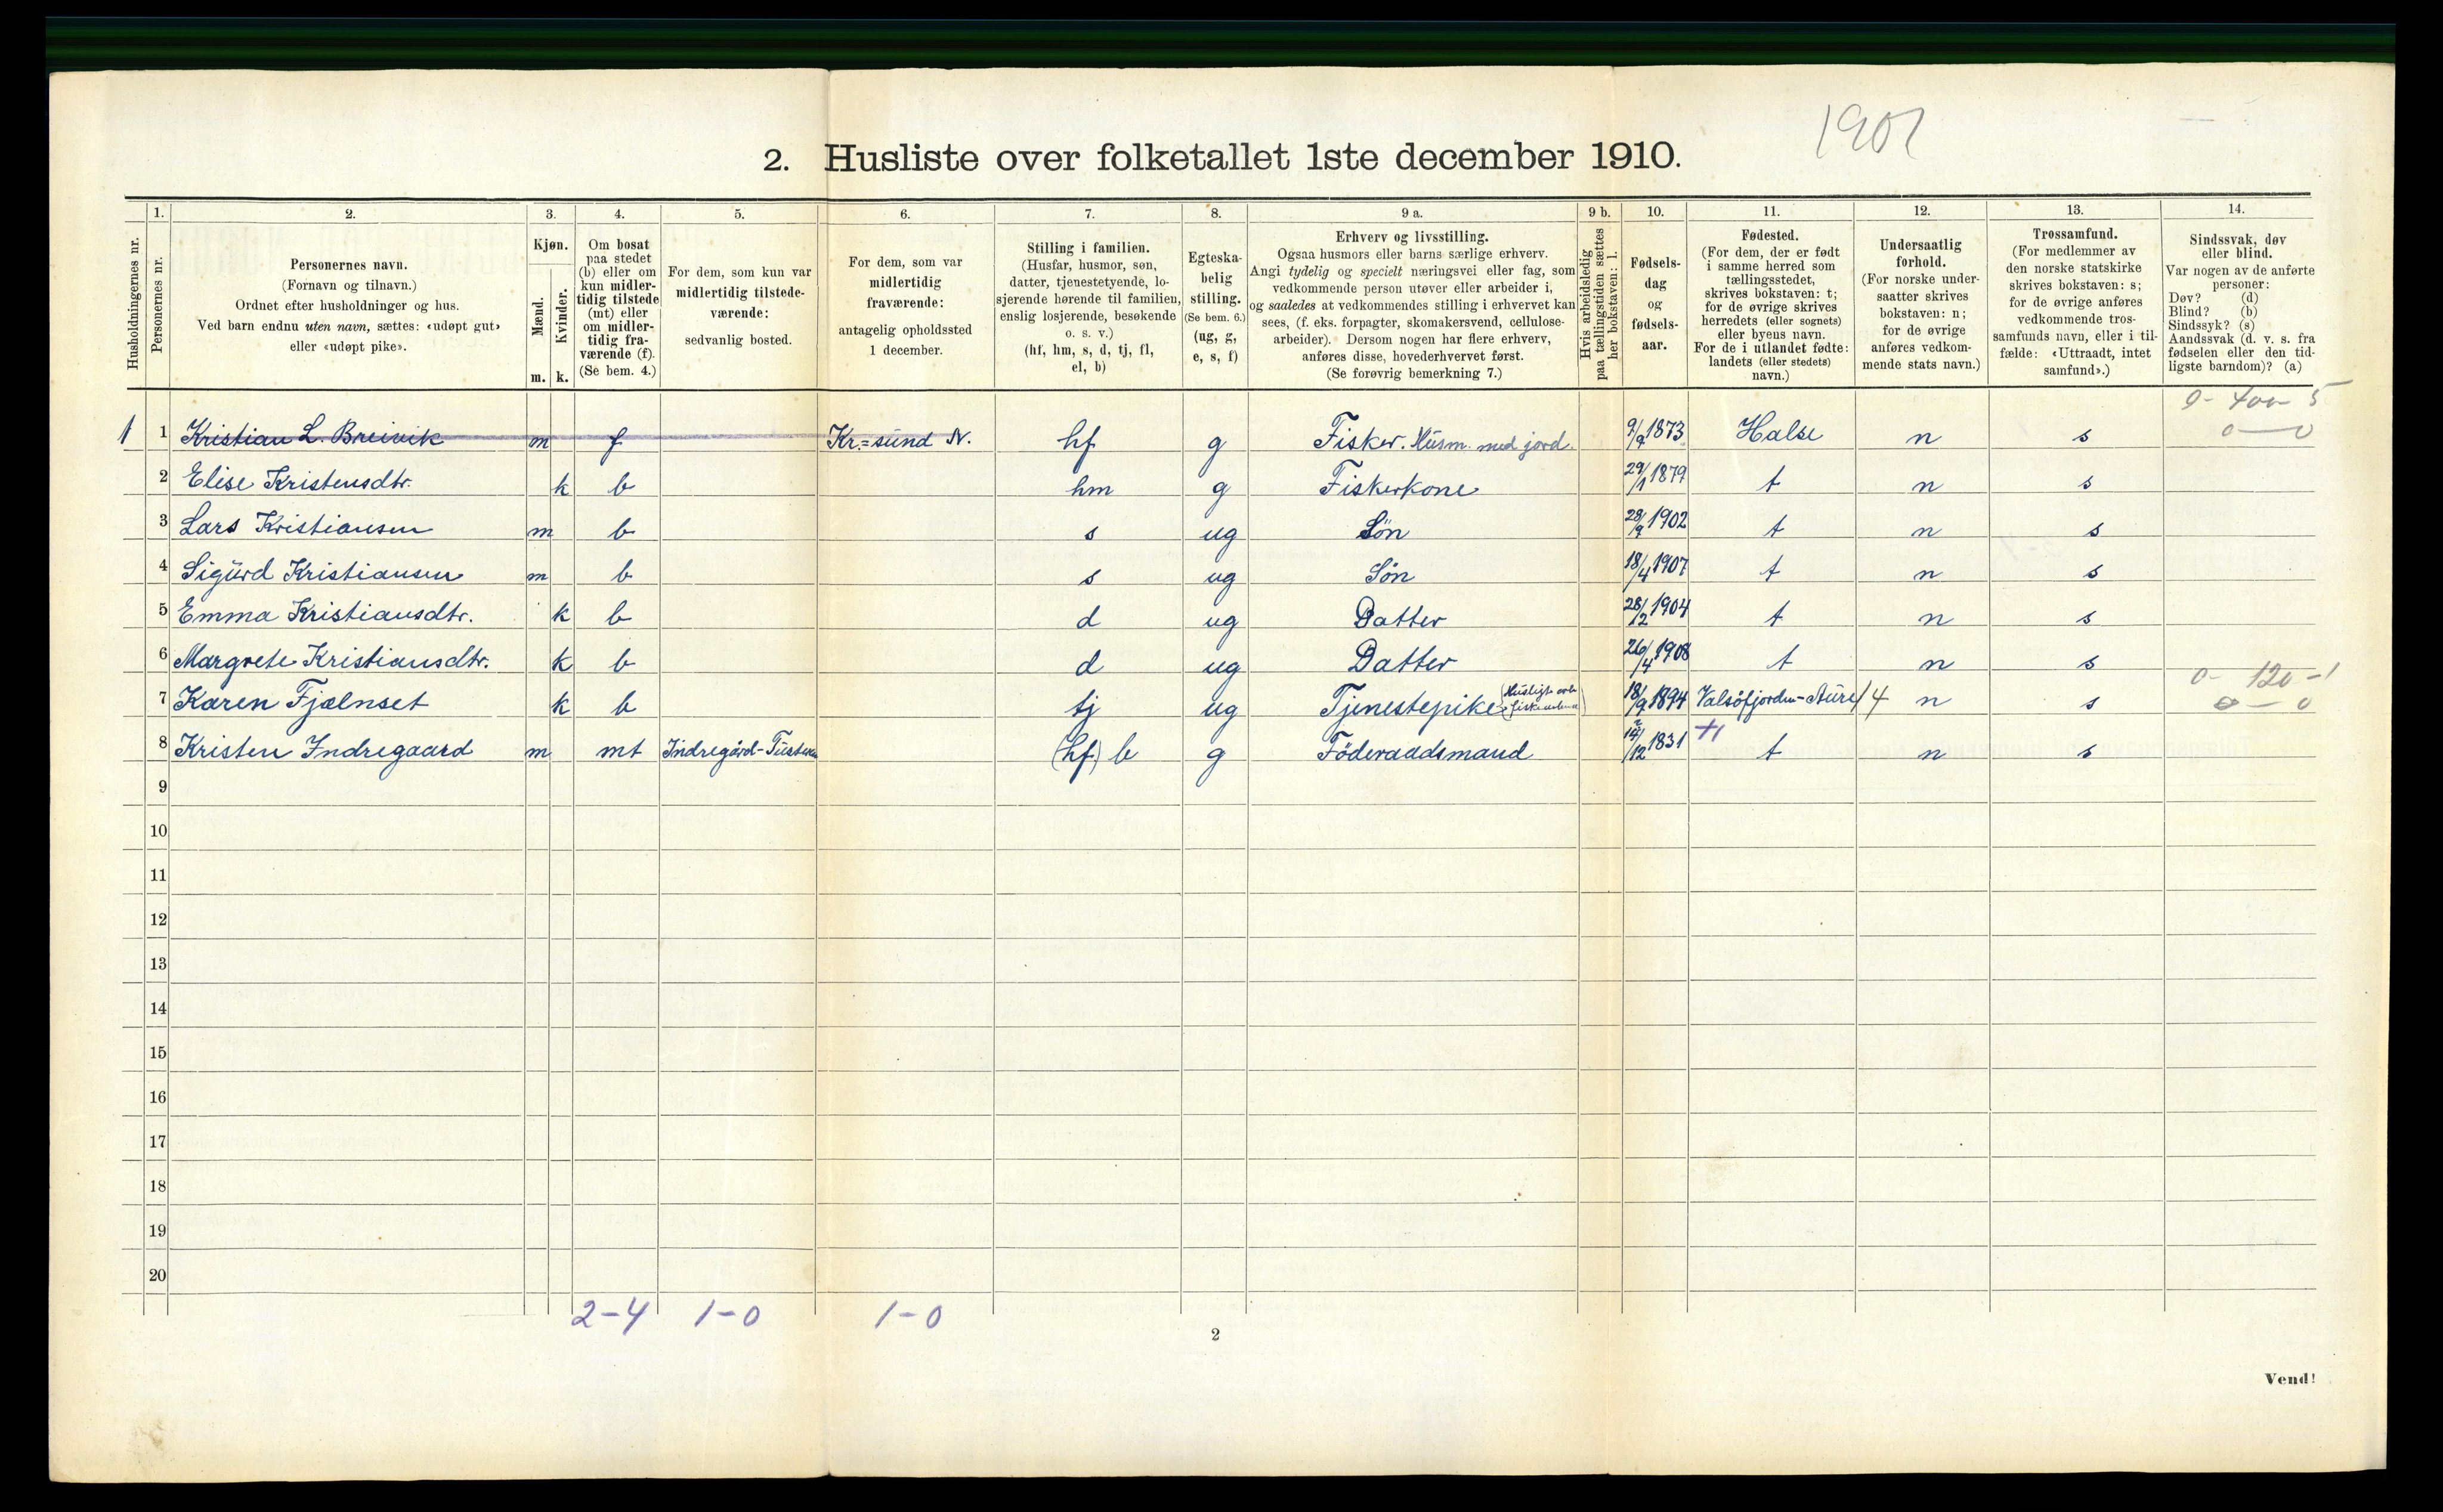 1901
2. Husliste over folketallet 1ste december 1910.
1. 2. 3. 4. 5. 6. 7. 8. 9 a. 9 b. 10. 11. 12. 13. 14.
Husholdningernes nr.
Personernes nr.
Personernes navn.
(Fornavn og tilnavn.)
Ordnet efter husholdninger og hus.
Ved barn endnu uten navn, sættes: «udøpt gut»
eller «udøpt pike».
Kjøn.
Mænd.
Kvinder.
m. k.
Om bosat
paa stedet
(b) eller om
kun midler-
tidig tilstede
(mt) eller
om midler-
tidig fra-
værende (f).
(Se bem. 4.)
For dem, som kun var
midlertidig tilstede-
værende:
sedvanlig bosted.
For dem, som var
midlertidig
fraværende:
antagelig opholdssted
1 december.
Stilling i familien.
(Husfar, husmor, søn,
datter, tjenestetyende, lo-
sjerende hørende til familien,
enslig losjerende, besøkende
o. s. v.)
(hf, hm, s, d, tj, fl,
el, b)
Egteska-
belig
stilling.
(Se bem. 6.)
(ug, g,
e, s, f)
Erhverv og livsstilling.
Ogsaa husmors eller barns særlige erhverv.
Angi tydelig og specielt næringsvei eller fag, som
vedkommende person utøver eller arbeider i,
og saaledes at vedkommendes stilling i erhvervet kan
sees, (f. eks. forpagter, skomakersvend, cellulose-
arbeider). Dersom nogen har flere erhverv,
anføres disse, hovederhvervet først.
(Se forøvrig bemerkning 7.)
Hvis arbeidsledig
paa tællingstiden sættes
her bokstaven: l.
Fødsels-
dag
og
fødsels-
aar.
Fødested.
(For dem, der er født
i samme herred som
tællingsstedet,
skrives bokstaven: t;
for de øvrige skrives
herredets (eller sognets)
eller byens navn.
For de i utlandet fødte:
landets (eller stedets)
navn.)
Undersaatlig
forhold.
(For norske under-
saatter skrives
bokstaven: n;
for de øvrige
anføres vedkom-
mende stats navn.)
Trossamfund.
(For medlemmer av
den norske statskirke
skrives bokstaven: s;
for de øvrige anføres
vedkommende tros-
samfunds navn, eller i til-
fælde: «Uttraadt, intet
samfund».)
Sindssvak, døv
eller blind.
Var nogen av de anførte
personer:
Døv? (d)
Blind? (b)
Sindssyk? (s)
Aandssvak (d. v. s. fra
fødselen eller den tid-
ligste barndom)? (a)
0- 400- 5
0 — 0
1 1 Kristian L. Breivik m f Kr.=sund N. hf g Fisker. Husm. med jord. 9/9 1873 Halse n s
2 Elise Kristensdtr. k b hm g Fiskerkone 29/1 1879 t n s
3 Lars Kristiansen m b s ug Søn 28/9 1902 t n s
4 Sigurd Kristiansen m b s ug Søn 18/4 1907 t n s
5 Emma Kristiansdtr. k b d ug Datter 28/12 1904 t n s
6 Margrete Kristiansdtr. k b d ug Datter 26/4 1908 t n s
0- 120 -1
7 Karen Fjælnset k b tj ug Tjenestepike (Husligt arb. 18/9 1894 Valsöfjorden-Aure 14 n s 0 — 0
8 Kristen Indregaard m mt Indregård-Tusteren (hf) b g Föderaadsmand 14/12 1831 t n s
9
10
11
12
13
14
15
16
17
18
19
20
2-4 1-0 1-0
2
Vend!